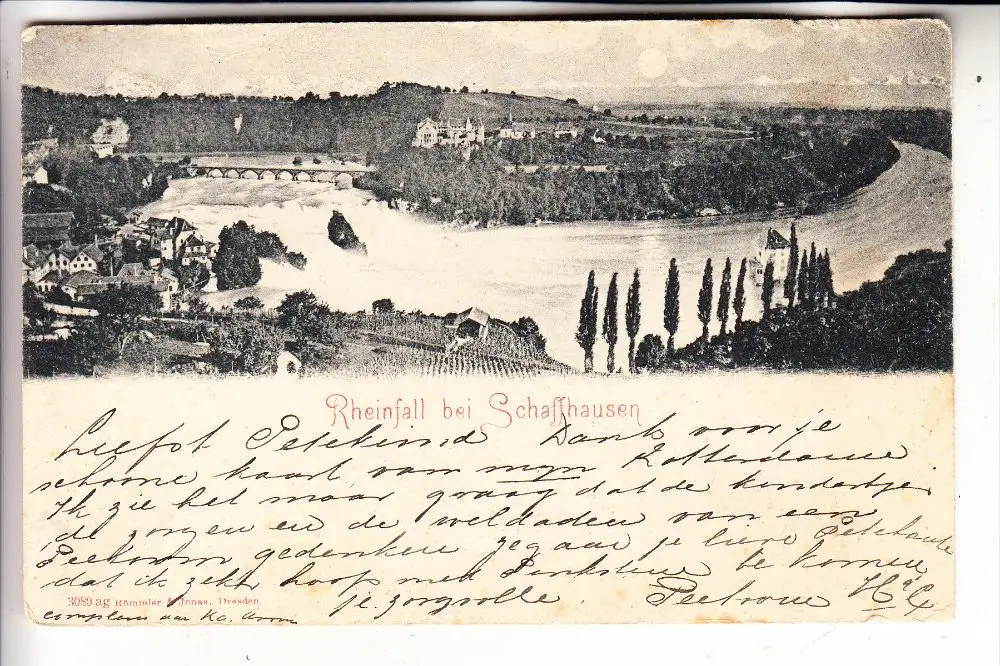 Rheinfall bei Schaffhausen
Liefst Petekind Dank voor je
schoone kaart van mijn Rotterdam
Ik zie het maar graag dat de kindertjes
de zorgen en de weldaden van een
Peetoom gedenken je lieve Petetante
dat ik zeker hoop met te komen
je zorgvolle. Peetoom
3089 ag Römmler & Jonas, Dresden.
aan